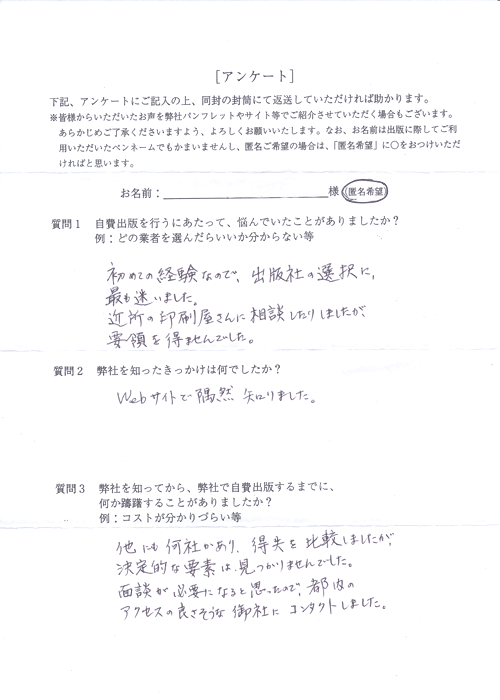 [アンケート]
下記、アンケートにご記入の上、同封の封筒にて返送していただければ助かります。
※皆様からいただいたお声を弊社パンフレットやサイト等でご紹介させていただく場合もございます。
あらかじめご了承くださいますよう、よろしくお願いいたします。なお、お名前は出版に際してご利
用いただいたペンネームでもかまいませんし、匿名ご希望の場合は、「匿名希望」に○をおつけいただ
ければと思います。
お名前：　様（匿名希望）
質問１　自費出版を行うにあたって、悩んでいたことがありましたか？
例：どの業者を選んだらいいか分からない等
初めての経験なので、出版社の選択に、
最も迷いました。
近所の印刷屋さんに相談したりしましたが
要領を得ませんでした。
質問２　弊社を知ったきっかけは何でしたか？
Webサイトで隅然 知りました。
質問３　弊社を知ってから、弊社で自費出版するまでに、
何か躊躇することがありましたか？
例：コストが分かりづらい等
他にも何社かあり、得失を比較しましたが、
決定的な要素は見つかりませんでした。
面談が必要になると思ったので、都内の
アクセスの良さそうな御社にコンタクトしました。